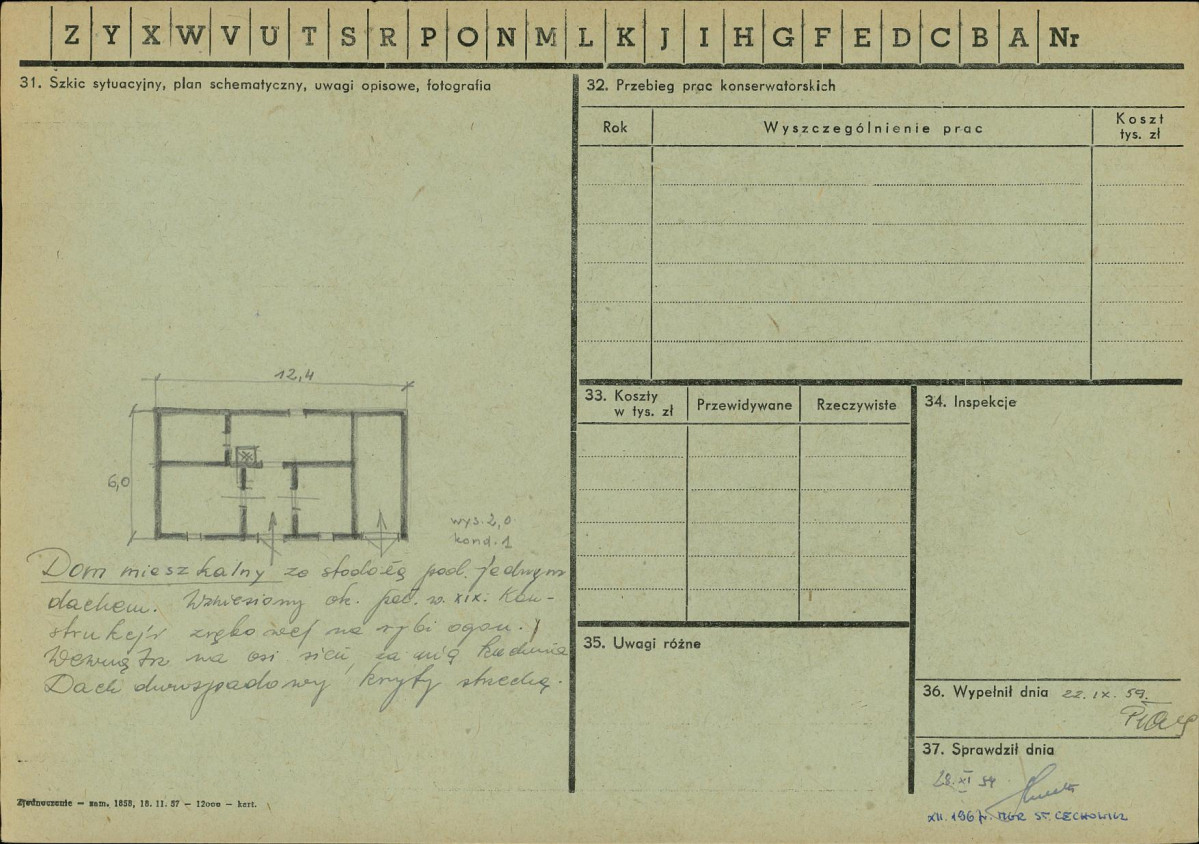 Z Y X W V U T S R P O N M L K J I H G F E D C B A Nr
31. Szkic sytuacyjny, plan schematyczny, uwagi opisowe, fotografia
12,4
6,0
wys. 2,0
kond. 1
Dom mieszkalny ze stodołą pod jednym
dachem. Wzniesiony ok. poł. w. XIX. Kon-
strukcji zrębowej na rybi ogon.
Wewnątrz na osi sień, za nią kuchnia
Dach dwuspadowy kryty strzechą.
Zjednoczenie — zam. 1858, 18. 11. 57 — 12000 — kart.
32. Przebieg prac konserwatorskich
Rok
Wyszczególnienie prac
Koszt
tys. zł
33. Koszty
w tys. zł
Przewidywane
Rzeczywiste
34. Inspekcje
35. Uwagi różne
36. Wypełnił dnia 22. IX. 59.
37. Sprawdził dnia
28. XI 59
XII. 1967. MGR ST. CECHOWICZ